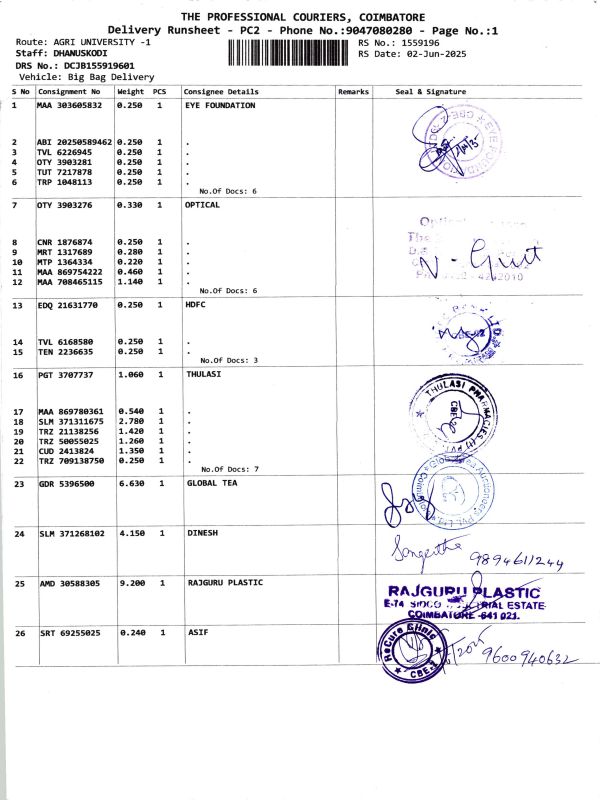 THE PROFESSIONAL COURIERS, COIMBATORE
Delivery Runsheet - PC2 - Phone No.:9047080280 - Page No.:1
Route: AGRI UNIVERSITY -1
RS No.: 1559196
Staff: DHANUSKODI
RS Date: 02-Jun-2025
DRS No.: DCJB155919601
Vehicle: Big Bag Delivery
S No Consignment No Weight PCS Consignee Details Remarks Seal & Signature
1 MAA 303605832 0.250 1 EYE FOUNDATION
2 ABI 20250589462 0.250 1 .
3 TVL 6226945 0.250 1 .
4 OTY 3903281 0.250 1 .
5 TUT 7217878 0.250 1 .
6 TRP 1048113 0.250 1 .
No.Of Docs: 6
7 OTY 3903276 0.330 1 OPTICAL
8 CNR 1876874 0.250 1 .
9 MRT 1317689 0.280 1 .
10 MTP 1364334 0.220 1 .
11 MAA 869754222 0.460 1 .
12 MAA 708465115 1.140 1 .
No.Of Docs: 6
13 EDQ 21631770 0.250 1 HDFC
14 TVL 6168580 0.250 1 .
15 TEN 2236635 0.250 1 .
No.Of Docs: 3
16 PGT 3707737 1.060 1 THULASI
THULASI PHARMACIES
17 MAA 869780361 0.540 1 .
18 SLM 371311675 2.780 1 .
19 TRZ 21138256 1.420 1 .
20 TRZ 50055025 1.260 1 .
21 CUD 2413824 1.350 1 .
22 TRZ 709138750 0.250 1 .
No.Of Docs: 7
23 GDR 5396500 6.630 1 GLOBAL TEA
24 SLM 371268102 4.150 1 DINESH
Sangeetha 9894611244
25 AMD 30588305 9.200 1 RAJGURU PLASTIC
RAJGURU PLASTIC
E-74 SIDCO ESTATE
COIMBATORE -641 021.
26 SRT 69255025 0.240 1 ASIF
ReCure Clinic
CBE-2
9600940632